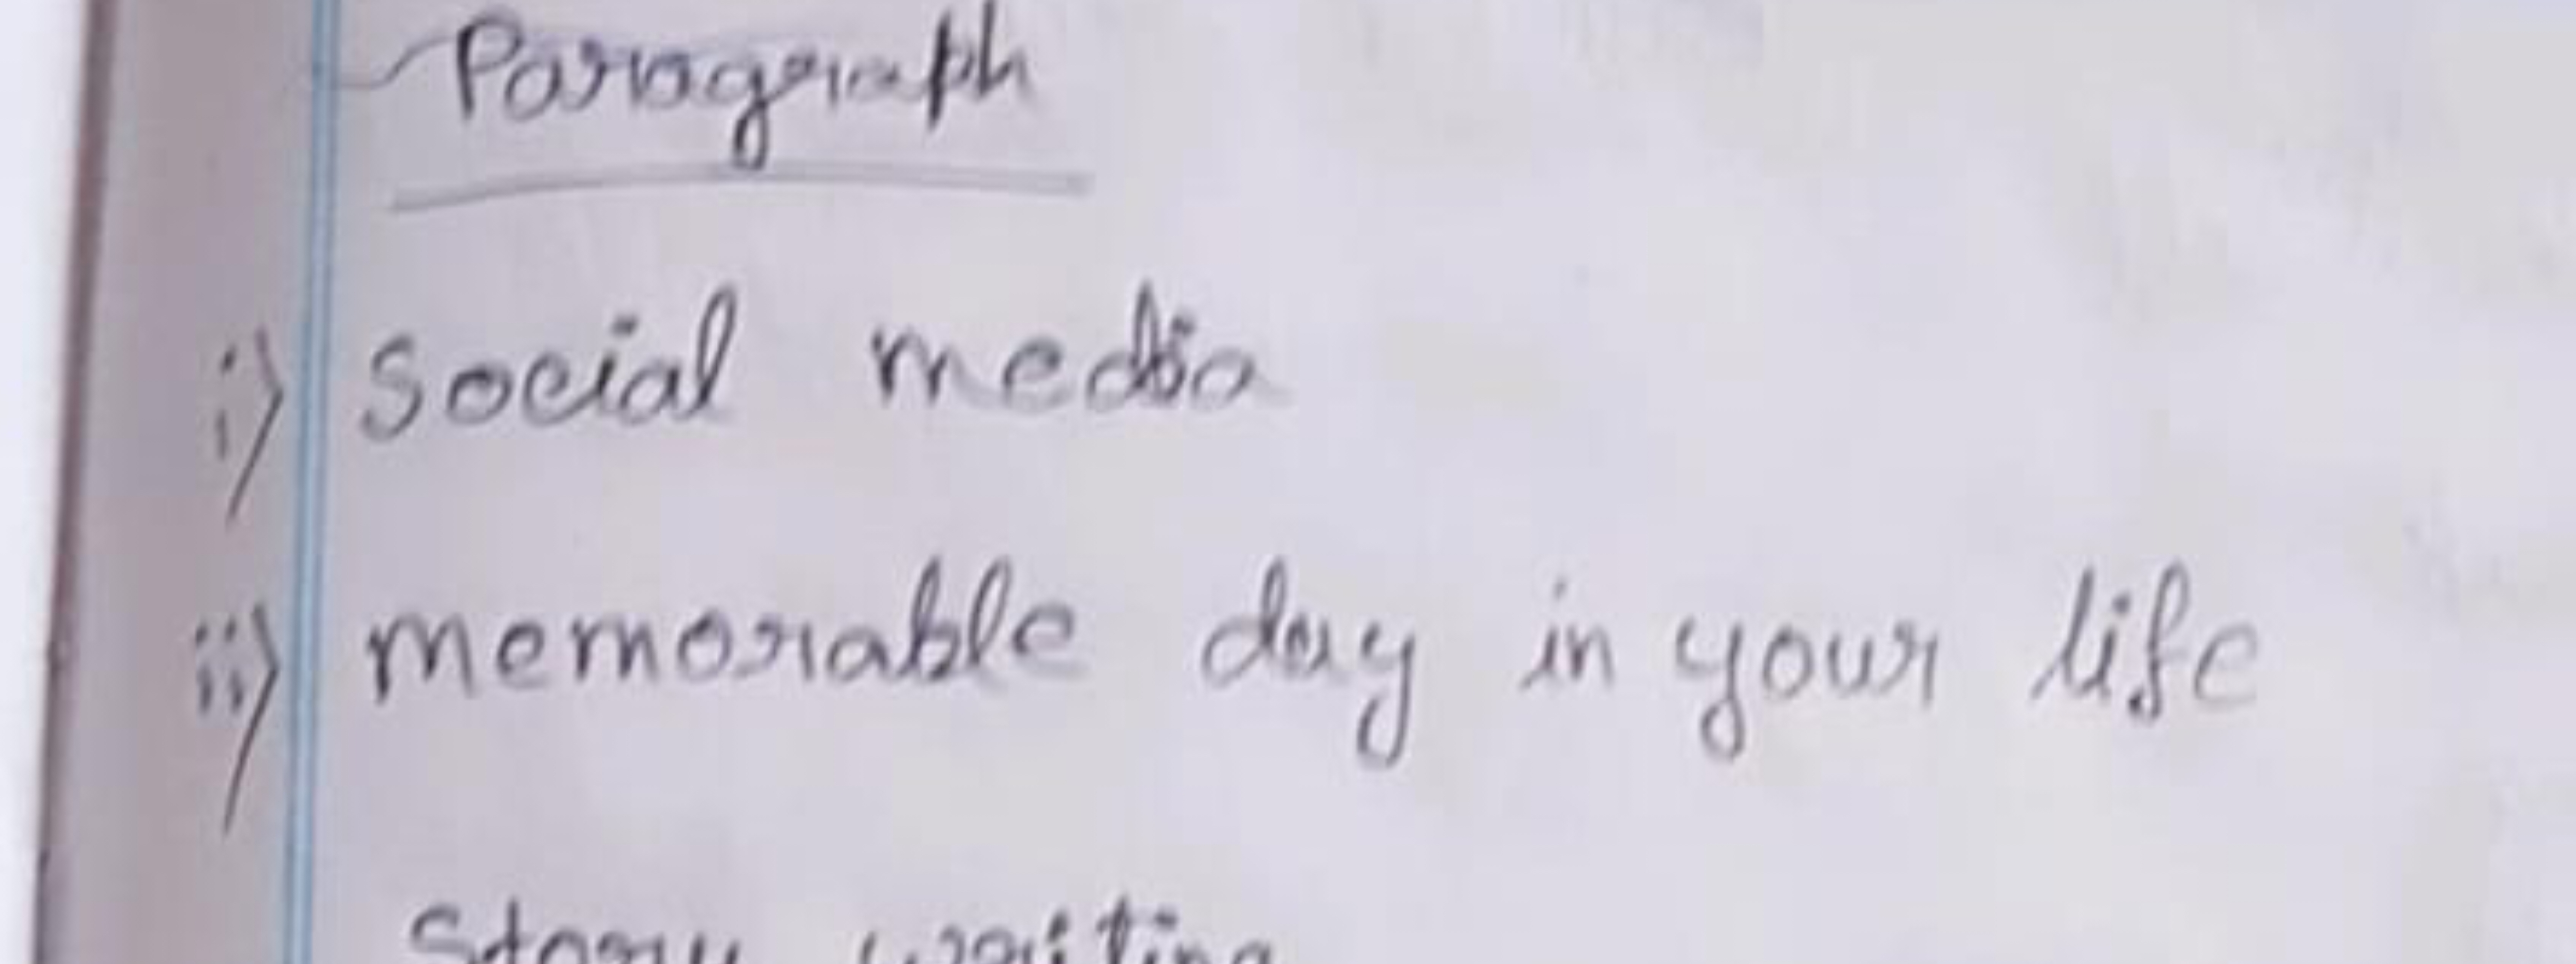 Paragraph
i) Social media
ii) memorable day in your life
Story writing